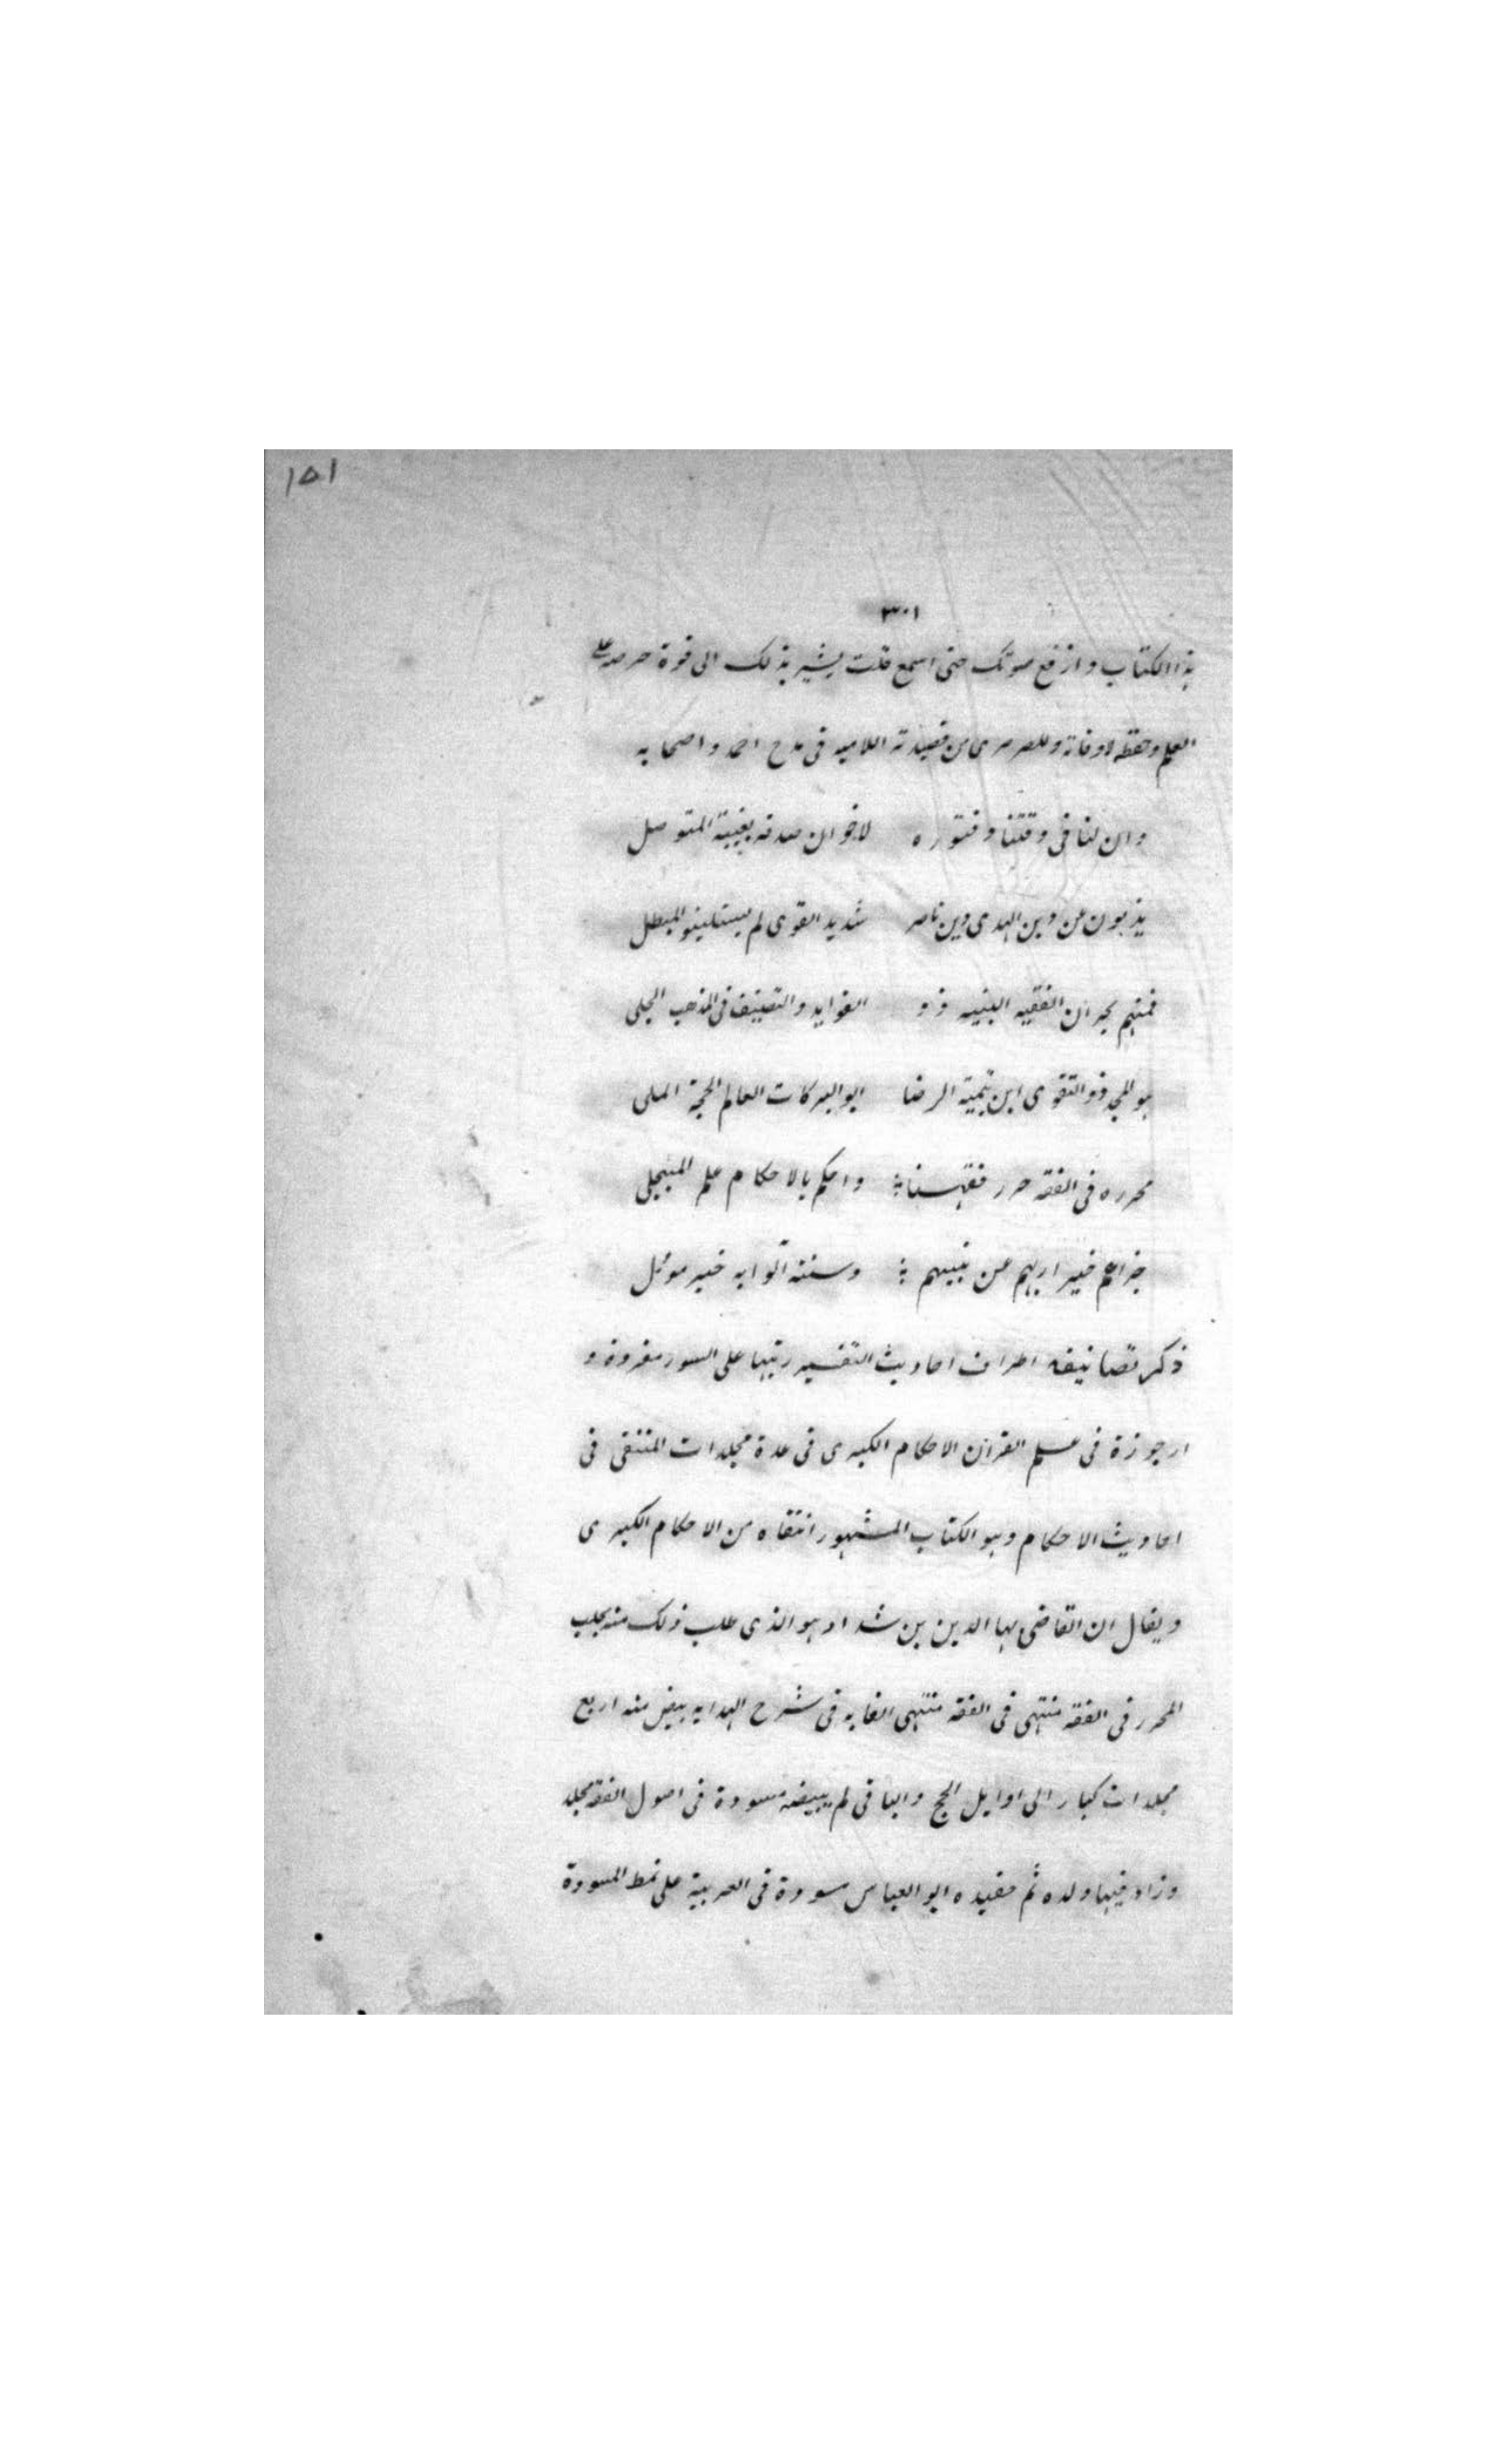 ١٥١
٣٠١
هذا الكتاب وارفع صوتك حتى اسمع قلت يشير بذلك الى قوة حرصه على
العلم وحفظه لاوقاته وللصرصرى من قصيدته اللاميه فى مدح احمد واصحابه
وان لنا فى وقتنا وفتوره لاخوان صدق بغية المتوصل
يذبون عن دين الهدى دين ناصر شديد القوى لم يستلينوا لمبطل
فمنهم بحران الفقيه النبيه ذو الفوايد والتصنيف فى المذهب الجلى
هو المجد ذو التقوى ابن تيمية الرضا ابو البركات العالم الحجة الملى
محرره فى الفقه حرر فقهنا واحكم بالاحكام علم المبجلى
جزاهم خيرا ربهم عن نبيهم وسنته آلوا به خير موئل
ذكر تصانيفه اطراف احاديث التفسير رتبها على السور مفروة و
ارجوزة فى علم القران الاحكام الكبرى فى عدة مجلدات المنتقى فى
احاديث الاحكام وهو الكتاب المشهور انتقاه من الاحكام الكبرى
ويقال ان القاضى بها الدين بن شداد هو الذى طلب ذلك منه بحلب
المحرر فى الفقه منتهى فى الفقه منتهى الغايه فى شرح الهدايه بيض منه اربع
مجلدات كبار الى اوايل الحج والباقى لم يبيضه مسودة فى اصول الفقه مجلد
وزاد فيها ولده ثم حفيده ابو العباس سودة فى العربية على نمط المسودة